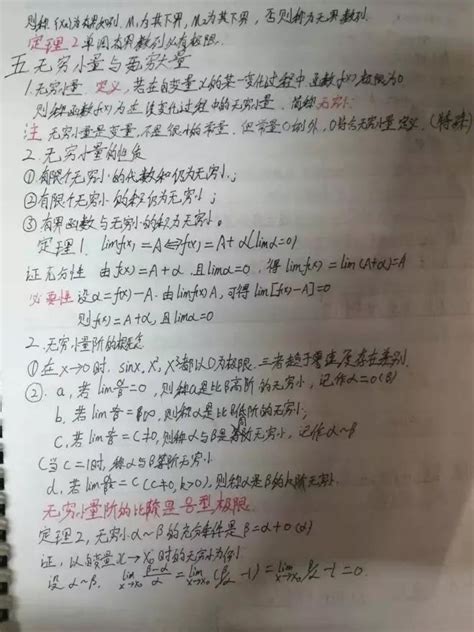 则称{xn}为有界数列,M₁为其下界,M₂为其下界,否则称为无界数列.
定理2 单调有界数列必有极限.
五 无穷小量与无穷大量
1.无穷小量 定义,若在自变量x的某一变化过程中,函数f(x)极限为0
则称函数f(x)为在该变化过程中的无穷小量,简称无穷小.
注 无穷小量是变量,不是很小的常量.但常量0例外,0符合无穷小量定义.(特殊)
2.无穷小量的性质
①有限个无穷小的代数和仍为无穷小;
②有限个无穷小的积仍为无穷小;
③有界函数与无穷小的积为无穷小。
定理1. limf(x)=A⇔f(x)=A+α(limα=0)
证 充分性 由f(x)=A+α.且limα=0,得limf(x)=lim(A+α)=A
必要性 设α=f(x)-A.由limf(x)A,可得lim[f(x)-A]=0
则f(x)=A+α,且limα=0
2.无穷小量阶的概念
①在x→0时,sinx,x²,x³都以0为极限.三者趋于零速度存在差别.
②.a,若lim α/β=0,则称α是比β高阶的无穷小,记作α=o(β)
b,若lim α/β=∞,则称α是比β低阶的无穷小;
c,若lim α/β=C≠0,则称α与β是同阶无穷小,记作α~β
C当C=1时,称α与β等阶无穷小
d,若lim α/βᵏ=C(C≠0,k>0),则称α是β的k阶无穷小.
无穷小量阶的比较是 型极限.
定理2,无穷小α~β的充分条件是β=α+o(α)
证,以 x→x₀时的无穷小为例
设α~β, lim x→x₀ (β-α)/α = lim x→x₀ (β/α -1) = lim x→x₀ β/α -1=0.